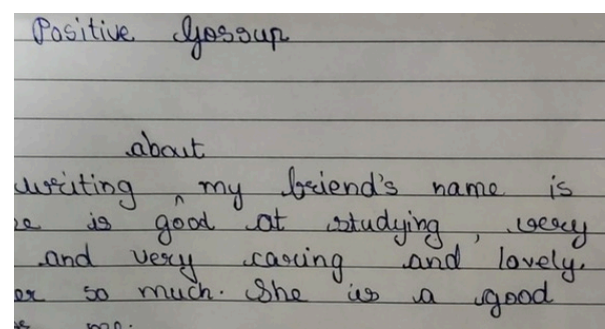 Positive Gossup
about
writing ^ my friend's name is
is good at studying, very
and very caring and lovely.
so much. She is a good
me.